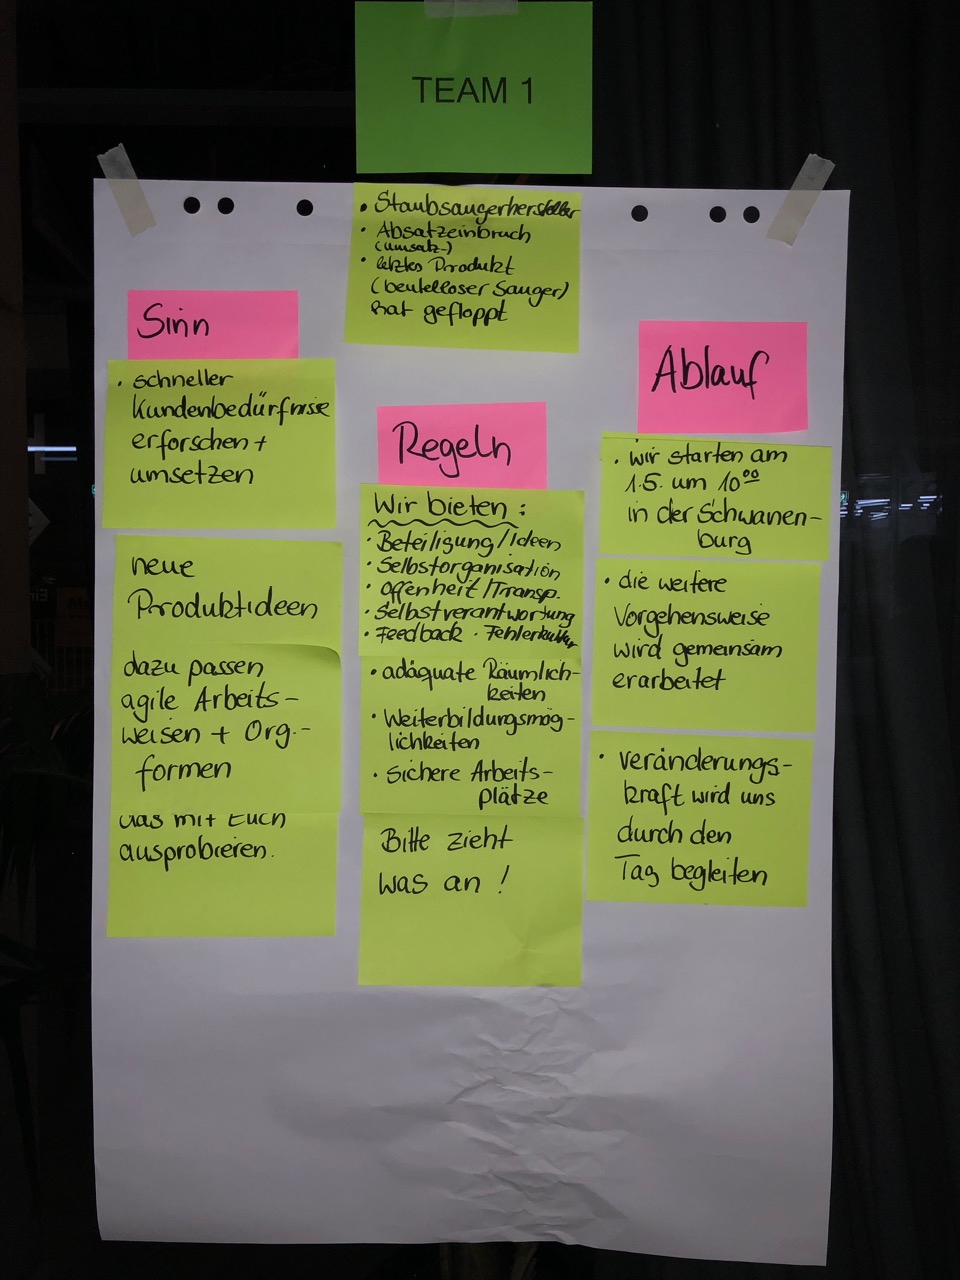 TEAM 1
• Staubsaugerhersteller
• Absatzeinbruch
(umsatz-)
• letztes Produkt
(beutelloser Sauger)
hat gefloppt
Sinn
• schneller
Kundenbedürfnisse
erforschen +
umsetzen
neue
Produktideen
dazu passen
agile Arbeits-
weisen + Org.-
formen
das mit Euch
ausprobieren.
Regeln
Wir bieten:
• Beteiligung/Ideen
• Selbstorganisation
• Offenheit/Transp.
• Selbstverantwortung
• Feedback • Fehlerkultur
• adäquate Räumlich-
keiten
• Weiterbildungsmög-
lichkeiten
• sichere Arbeits-
plätze
Bitte zieht
was an!
Ablauf
• wir starten am
1.5. um 10⁰⁰
in der Schwanen-
burg
• die weitere
Vorgehensweise
wird gemeinsam
erarbeitet
• veränderungs-
kraft wird uns
durch den
Tag begleiten